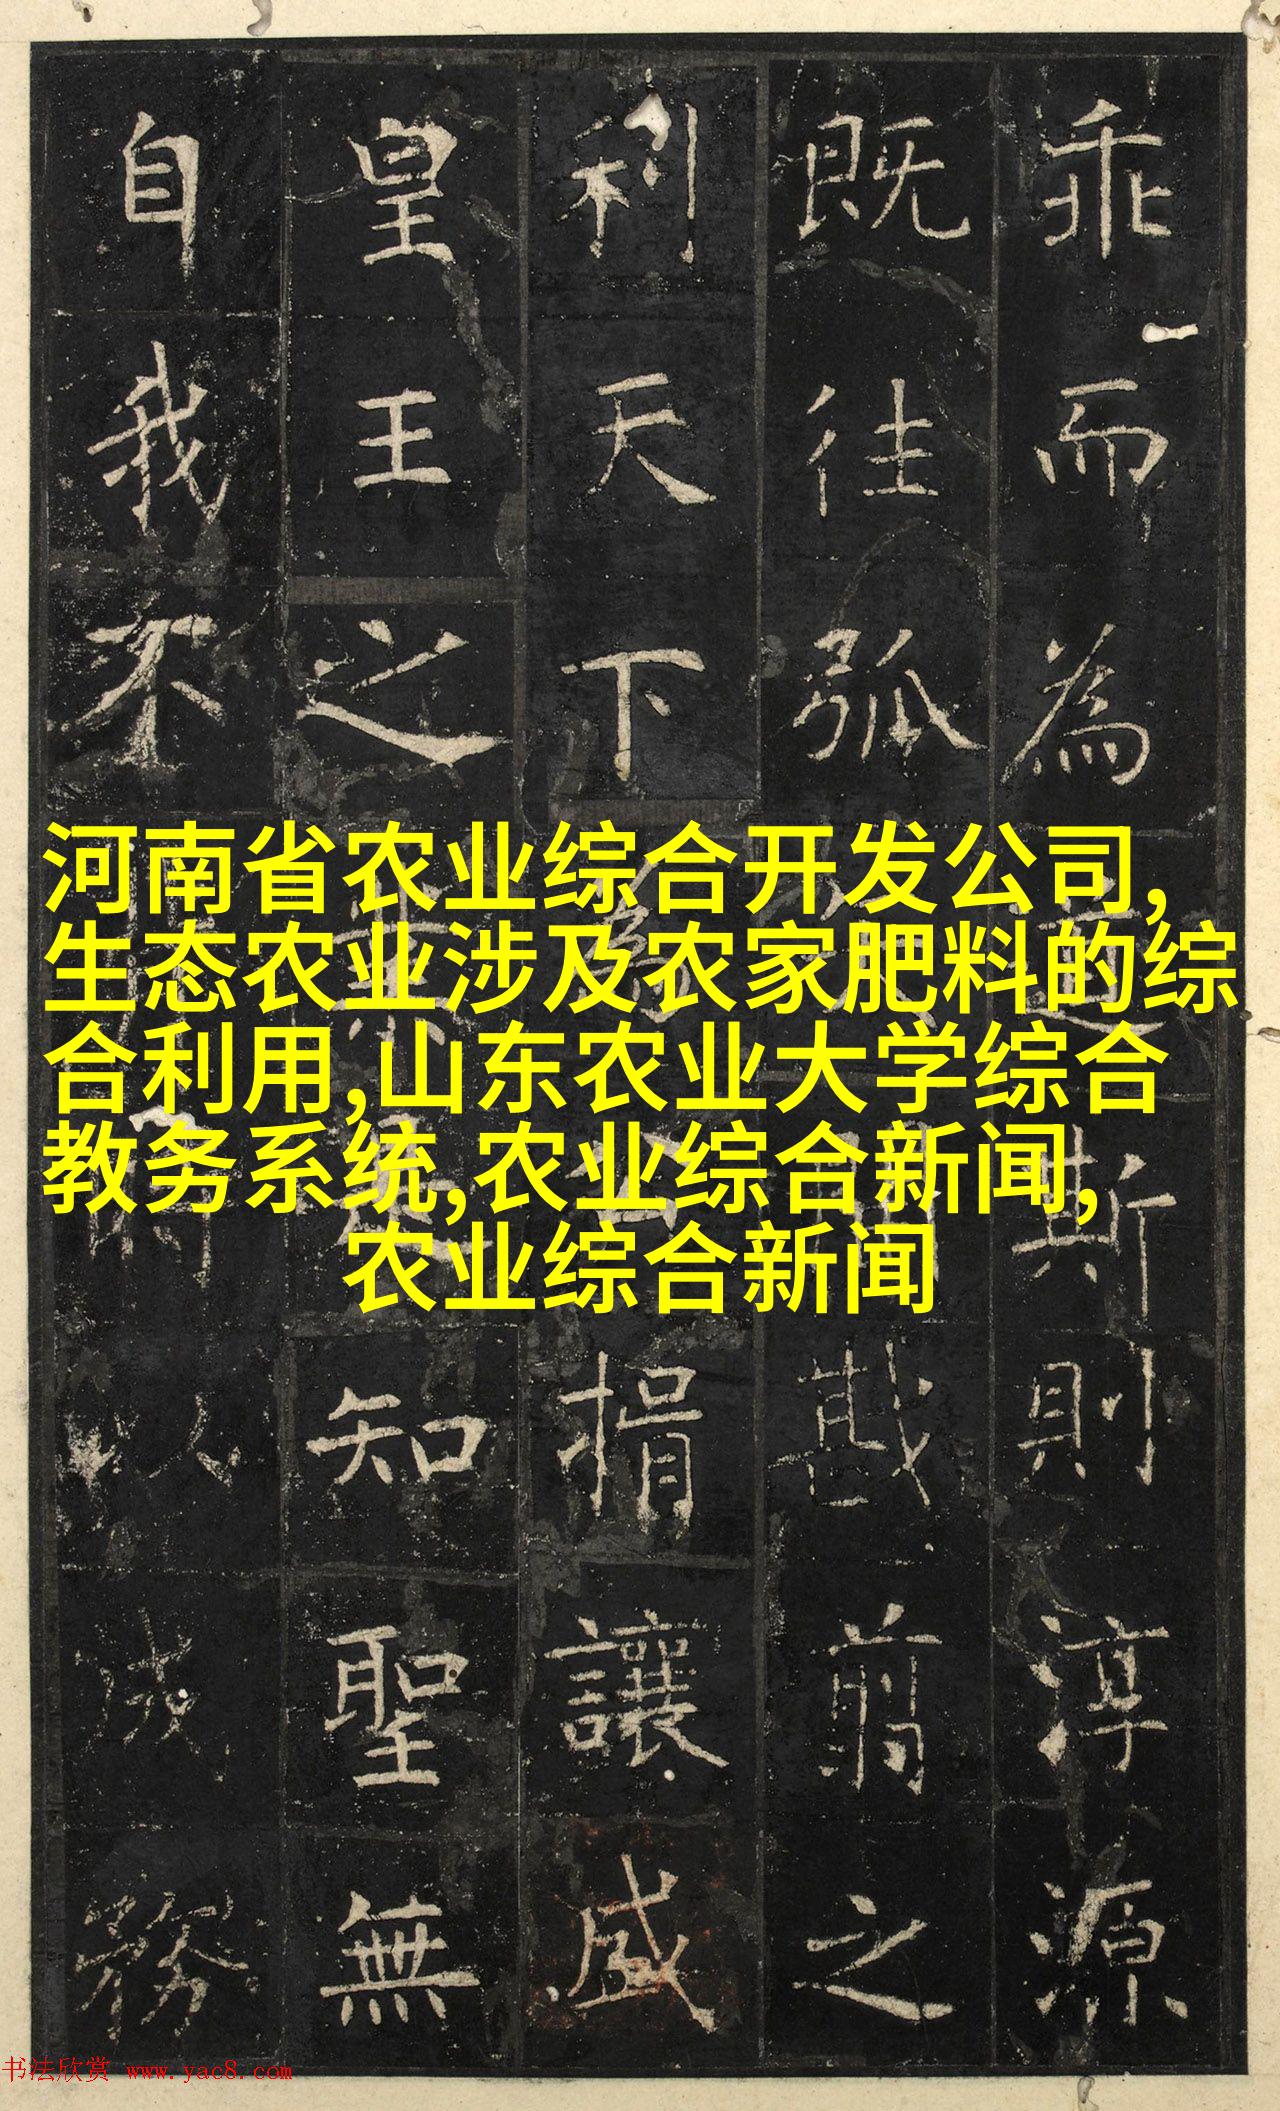 乖而為斯則淳源
既往弧戡翦之
利天下讓盛
皇王之知聖無
自我不務
河南省农业综合开发公司,
生态农业涉及农家肥料的综
合利用,山东农业大学综合
教务系统,农业综合新闻,
农业综合新闻
书法欣赏 www.yac8.com